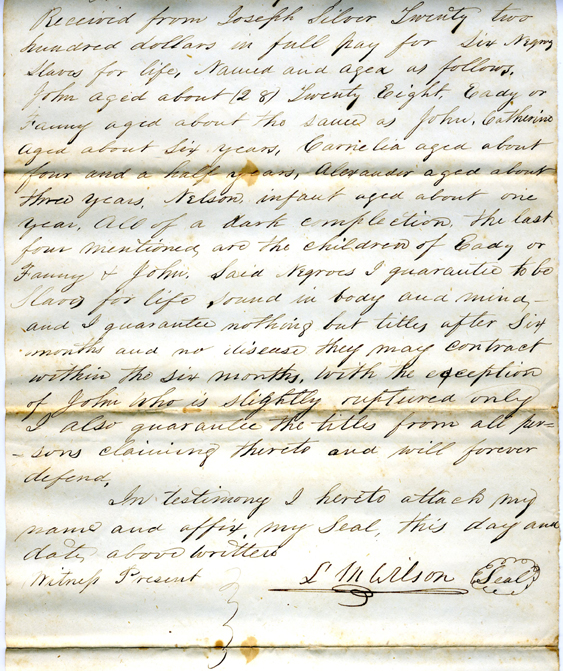 Received from Joseph Silver Twenty two
hundred dollars in full pay for Six Negroy
Slaves for life, Named and aged as follows,
John aged about (28) Twenty Eight, Eady or
Fanny aged about the same as John, Catherine
aged about Six years, Cornelia aged about
four and a half years, Alexander aged about
three years, Nelson, infant aged about one
year, All of a dark complection, the last
four mentioned are the children of Eady or
Fanny & John. Said Negroes I guarantee to be
Slaves for life, sound in body and mind,-
and I guarantee nothing but titles after Six
months and no disease they may contract
within the six months, with the exception
of John who is slightly ruptured only
I also guarantee the titles from all per-
-sons claiming thereto and will forever
defend,
In testimony I hereto attach my
name and affix my Seal, this day and
date above written
Witness Present L M Wilson Seal